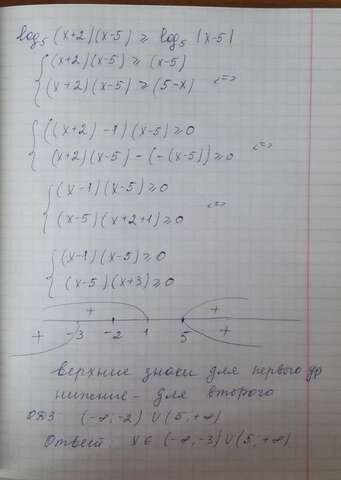 log₅ (x+2)(x-5) ≥ log₅ |x-5|
{(x+2)(x-5) ≥ (x-5)
(x+2)(x-5) ≥ (5-x) <=>
{((x+2)-1)(x-5) ≥ 0
(x+2)(x-5) - (-(x-5)) ≥ 0 <=>
{(x-1)(x-5) ≥ 0
(x-5)(x+2+1) ≥ 0 <=>
{(x-1)(x-5) ≥ 0
(x-5)(x+3) ≥ 0
+ +
+ -3 -2 1 5 +
верхние знаки для первого ур
нижние - для второго
ОДЗ: (-∞, -2) ∪ (5, +∞)
Ответ: x ∈ (-∞, -3) ∪ (5, +∞)